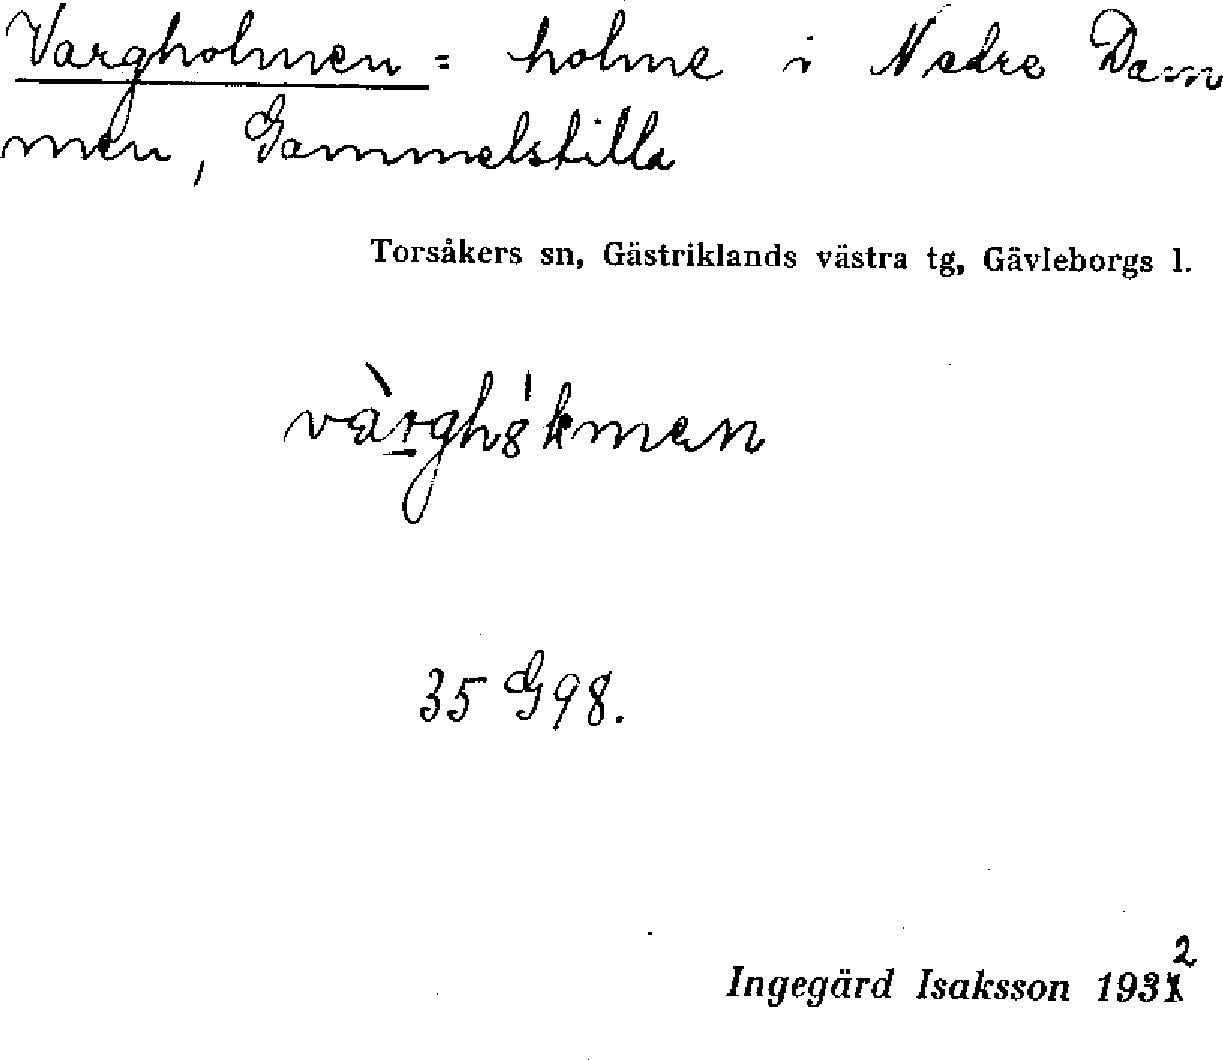 Vargholmen = holme i Nedre Dam
men, Gammelstilla
Torsåkers sn, Gästriklands västra tg, Gävleborgs l.
35 G 98.
Ingegärd Isaksson 1932